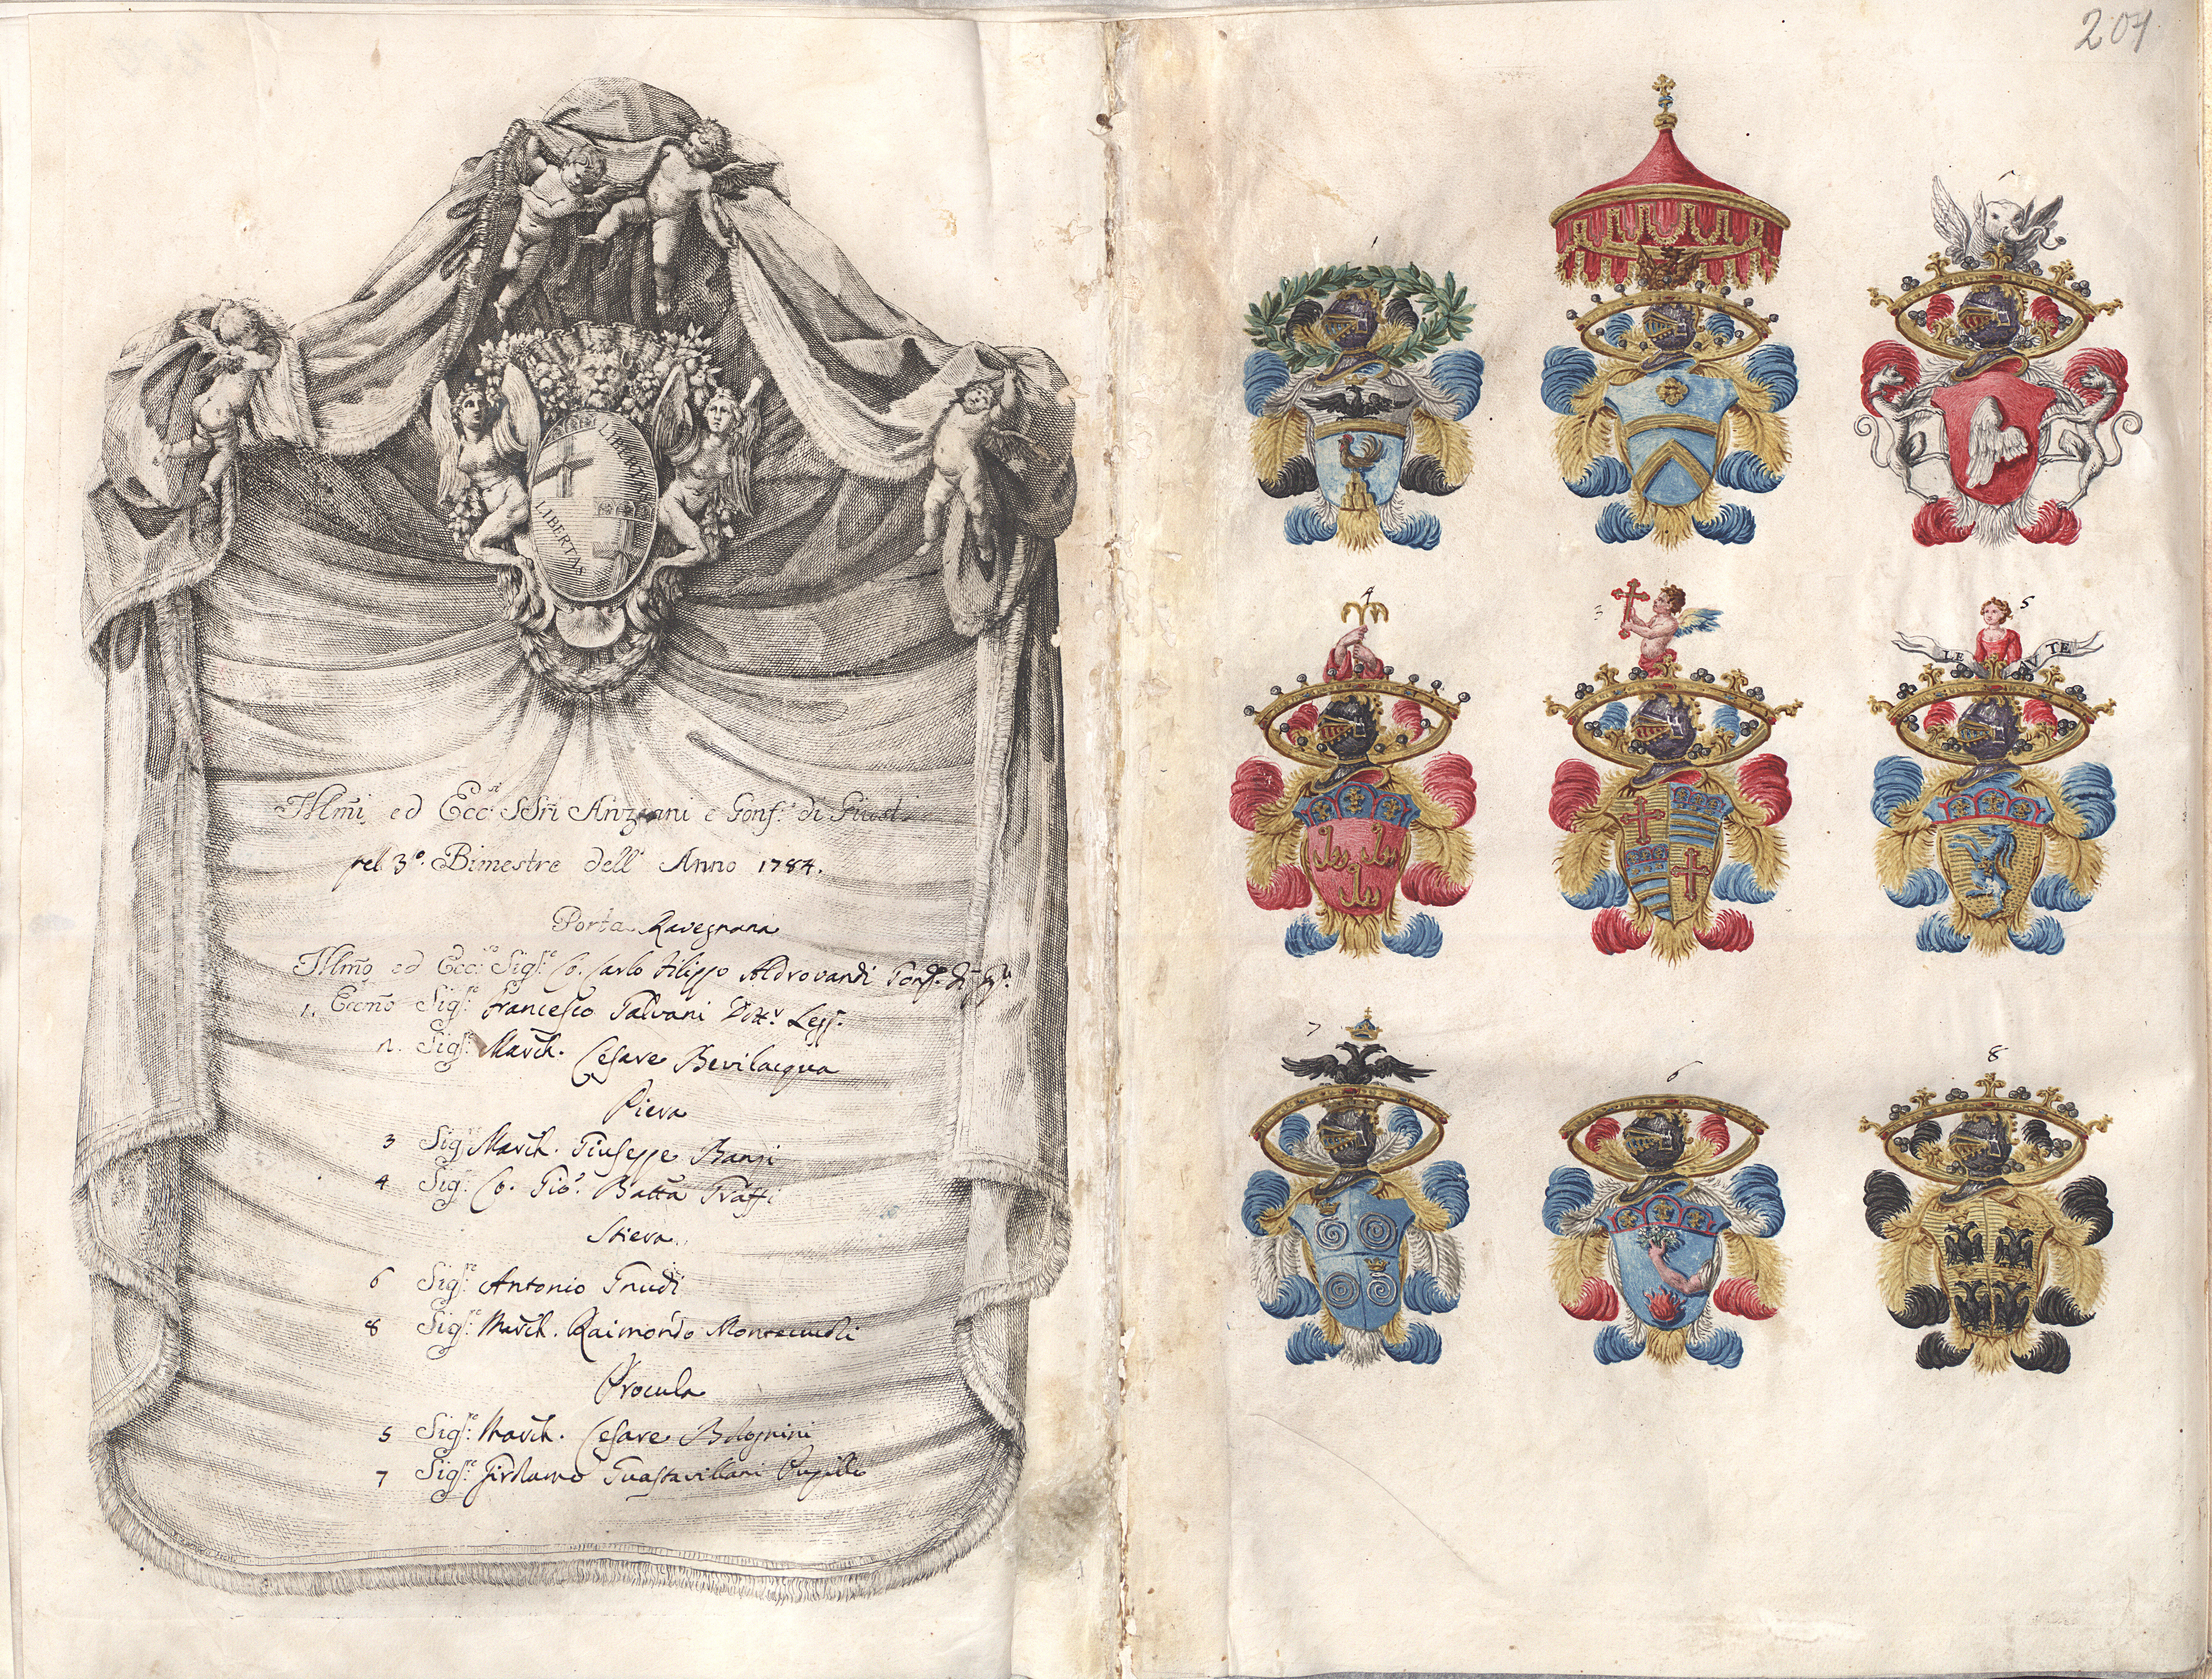 LIBERTAS
LIBERTAS
Illm̃i ed Ecc:si SSri Anziani e Gonf:i di Giust:
pel 3º. Bimestre dell' Anno 1784.
Porta Ravegnana
Illm̃o ed Ecc:so Sigre: Co. Carlo Filippo Aldrovandi Gonf:e di Giu:
1. Eccm̃o Sigre: Francesco Galvani Dott:r Legg:
2. Sigre: March. Cesare Bevilacqua
Piera
3 Sigre: March. Giuseppe Banzi
4 Sigre: Co. Gio: Batta Graffi
Stiera
6 Sigre: Antonio Gnudi
8 Sigre: March. Raimondo Montecucoli
Procula
5 Sigre: March. Cesare Bolognini
7 Sigre: Girolamo Guastavillani Pupillo
204
1
2
4
3
5
LE AVTE
7
6
8